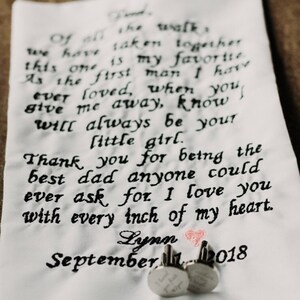 Dad,
Of all the walks
we have taken together
this one is my favorite.
As the first man I have
ever loved, when you
give me away, know I
will always be your
little girl.
Thank you for being the
best dad anyone could
ever ask for. I love you
with every inch of my heart.
Lynn
September 2018